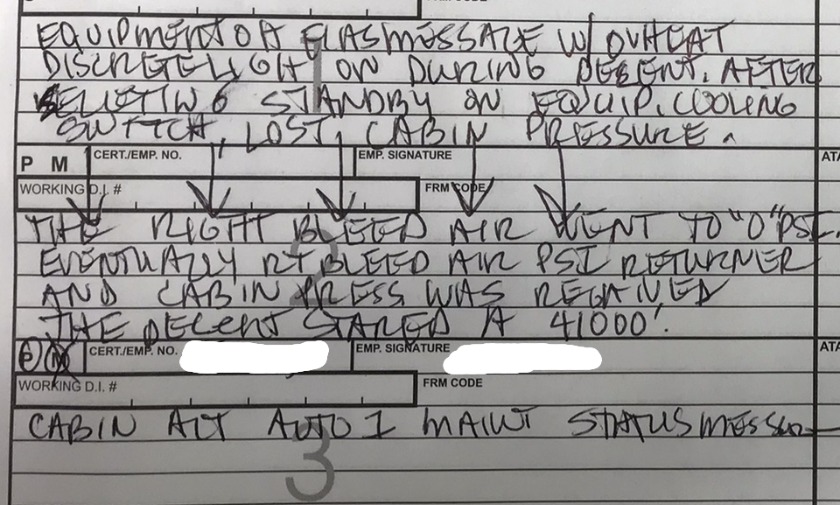 EQUIPMENT OH EICAS MESSAGE W/ OVHEAT
DISCRETE LIGHT ON DURING DESENT. AFTER
SELLETING STANDBY ON EQUIP. COOLING
SWITCH, LOST, CABIN PRESSURE.
P M CERT./EMP. NO. EMP. SIGNATURE ATA
WORKING D.I. # FRM CODE
THE RIGHT BLEED AIR WENT TO "0" PSI.
2
EVENTUALLY RT BLEED AIR PSI RETURNER
AND CABIN PRESS WAS REGAINED
THE DECENT STARED A 41000'.
P M CERT./EMP. NO. EMP. SIGNATURE ATA
WORKING D.I. # FRM CODE
CABIN ALT AUTO 1 MAINT STATUS MESSAGE
3